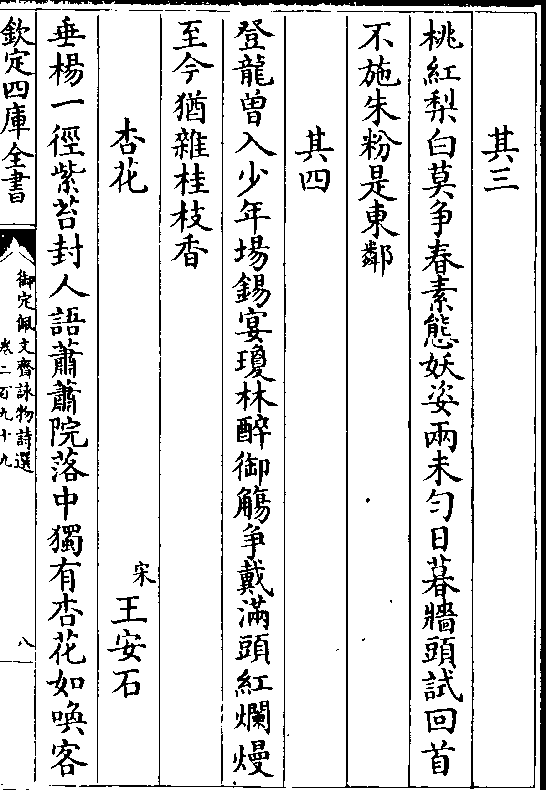 其三
桃紅梨白莫争春素態妖姿兩未勻日暮牆頭試回首
不施朱粉是東鄰
其四
登龍曽入少年場錫宴瓊林醉御觴争戴滿頭紅爛熳
至今猶雜桂枝香
杏花
宋王安石
垂楊一徑紫苔封人語蕭蕭院落中獨有杏花如喚客
欽定四庫全書
御定佩文齋詠物詩選
卷二百九十九
八